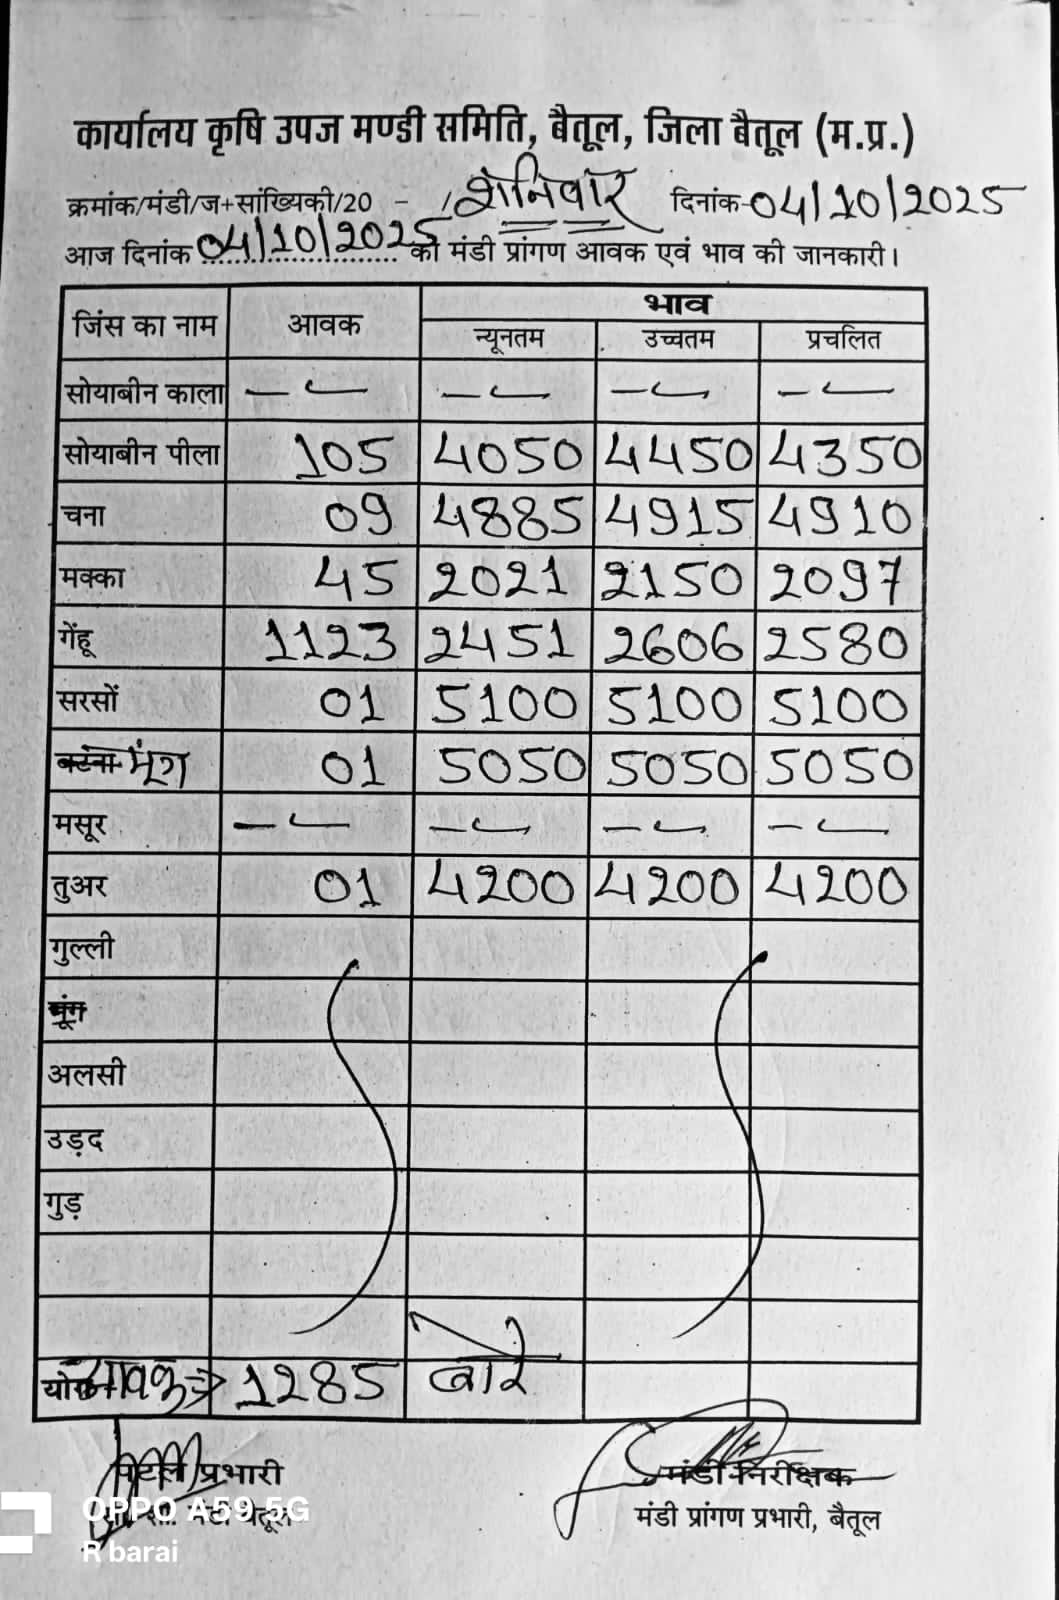 कार्यालय कृषि उपज मण्डी समिति, बैतूल, जिला बैतूल (म.प्र.)
क्रमांक/मंडी/ज+सांख्यिकी/20 - / शनिवार दिनांक-04/10/2025
आज दिनांक 04/10/2025 को मंडी प्रांगण आवक एवं भाव की जानकारी।
जिंस का नाम आवक भाव
न्यूनतम उच्चतम प्रचलित
सोयाबीन काला — — — —
सोयाबीन पीला 105 4050 4450 4350
चना 09 4885 4915 4910
मक्का 45 2021 2150 2097
गेंहू 1123 2451 2606 2580
सरसों 01 5100 5100 5100
बटना मूंग 01 5050 5050 5050
मसूर — — — —
तुअर 01 4200 4200 4200
गुल्ली
मूंग
अलसी
उड़द
गुड़
आवक ⇒ 1285 बोरे
प्रभारी मंडी निरीक्षक
मंडी बैतूल मंडी प्रांगण प्रभारी, बैतूल
OPPO A59 5G
R barai